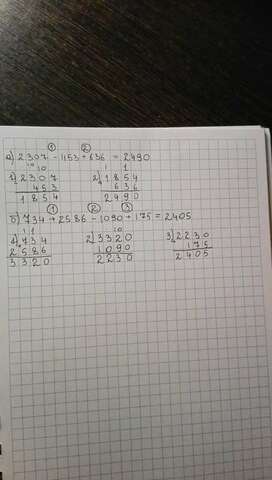 ① ②
а) 2307 - 453 + 636 = 2490
10 10 1 1
1) 2307 2) 1854
- 453 + 636
1854 2490
① ② ③
б) 734 + 2586 - 1090 + 175 = 2405
1 1 10
1) 734 2) 3320 3) 2230
2586 1090 175
3320 2230 2405